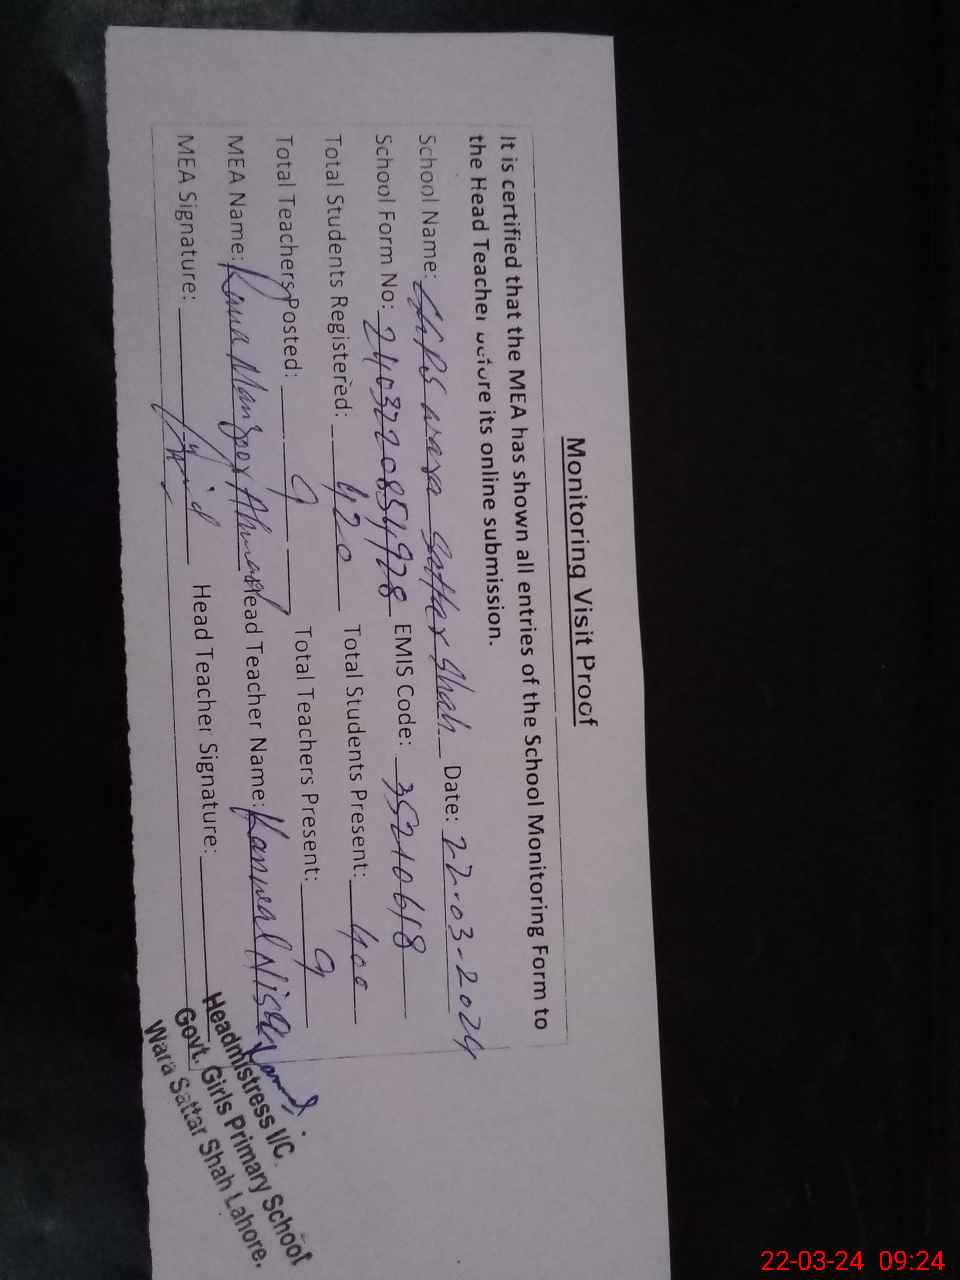 Monitoring Visit Proof
It is certified that the MEA has shown all entries of the School Monitoring Form to
the Head Teacher before its online submission.
School Name: GGPS wara Sattar Shah Date: 22-03-2024
School Form No: 2403220854928 EMIS Code: 35210618
Total Students Registered: 420 Total Students Present: 400
Total Teachers Posted: 9 Total Teachers Present: 9
MEA Name: Rana Manzoor Ahmad Head Teacher Name: Kanwal Nisar
MEA Signature: Head Teacher Signature:
Headmistress I/C.
Govt. Girls Primary School
Wara Sattar Shah Lahore.
22-03-24 09:24